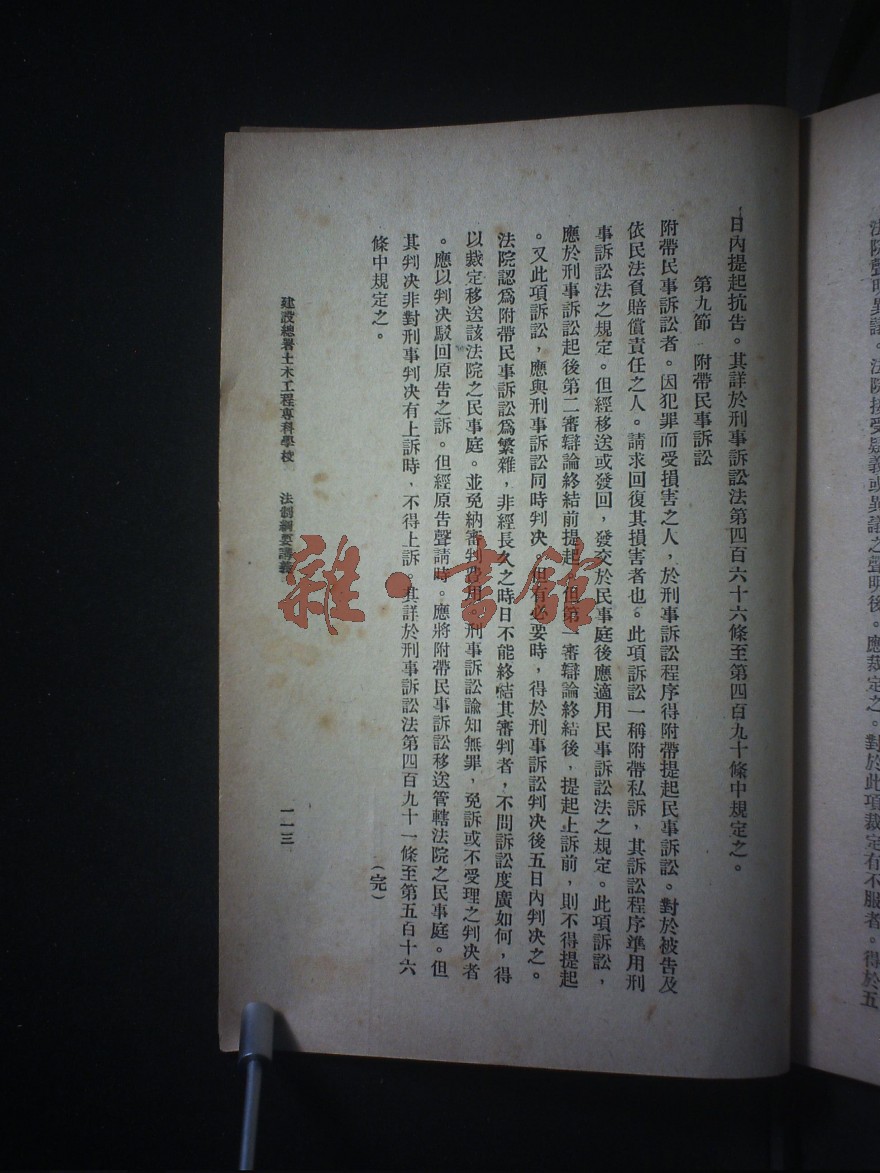 法院聲明異議。法院接受疑義或異議之聲明後。應裁定之。對於此項裁定有不服者。得於五
日內提起抗告。其詳於刑事訴訟法第四百六十六條至第四百九十條中規定之。
第九節　附帶民事訴訟
附帶民事訴訟者。因犯罪而受損害之人，於刑事訴訟程序得附帶提起民事訴訟。對於被告及
依民法負賠償責任之人。請求回復其損害者也。此項訴訟一稱附帶私訴，其訴訟程序準用刑
事訴訟法之規定。但經移送或發回，發交於民事庭後應適用民事訴訟法之規定。此項訴訟，
應於刑事訴訟起後第二審辯論終結前提起。但第一審辯論終結後，提起上訴前，則不得提起
。又此項訴訟，應與刑事訴訟同時判决。但有必要時，得於刑事訴訟判决後五日內判决之。
法院認爲附帶民事訴訟爲繁雜，非經長久之時日不能終結其審判者，不問訴訟度廣如何，得
以裁定移送該法院之民事庭。並免納審判費用。刑事訴訟諭知無罪，免訴或不受理之判决者
。應以判决駁回原告之訴。但經原告聲請時。應將附帶民事訴訟移送管轄法院之民事庭。但
其判决非對刑事判决有上訴時，不得上訴。其詳於刑事訴訟法第四百九十一條至第五百十六
條中規定之。
（完）
建設總署土木工程專科學校　法制綱要講義　一一三
雜·書館